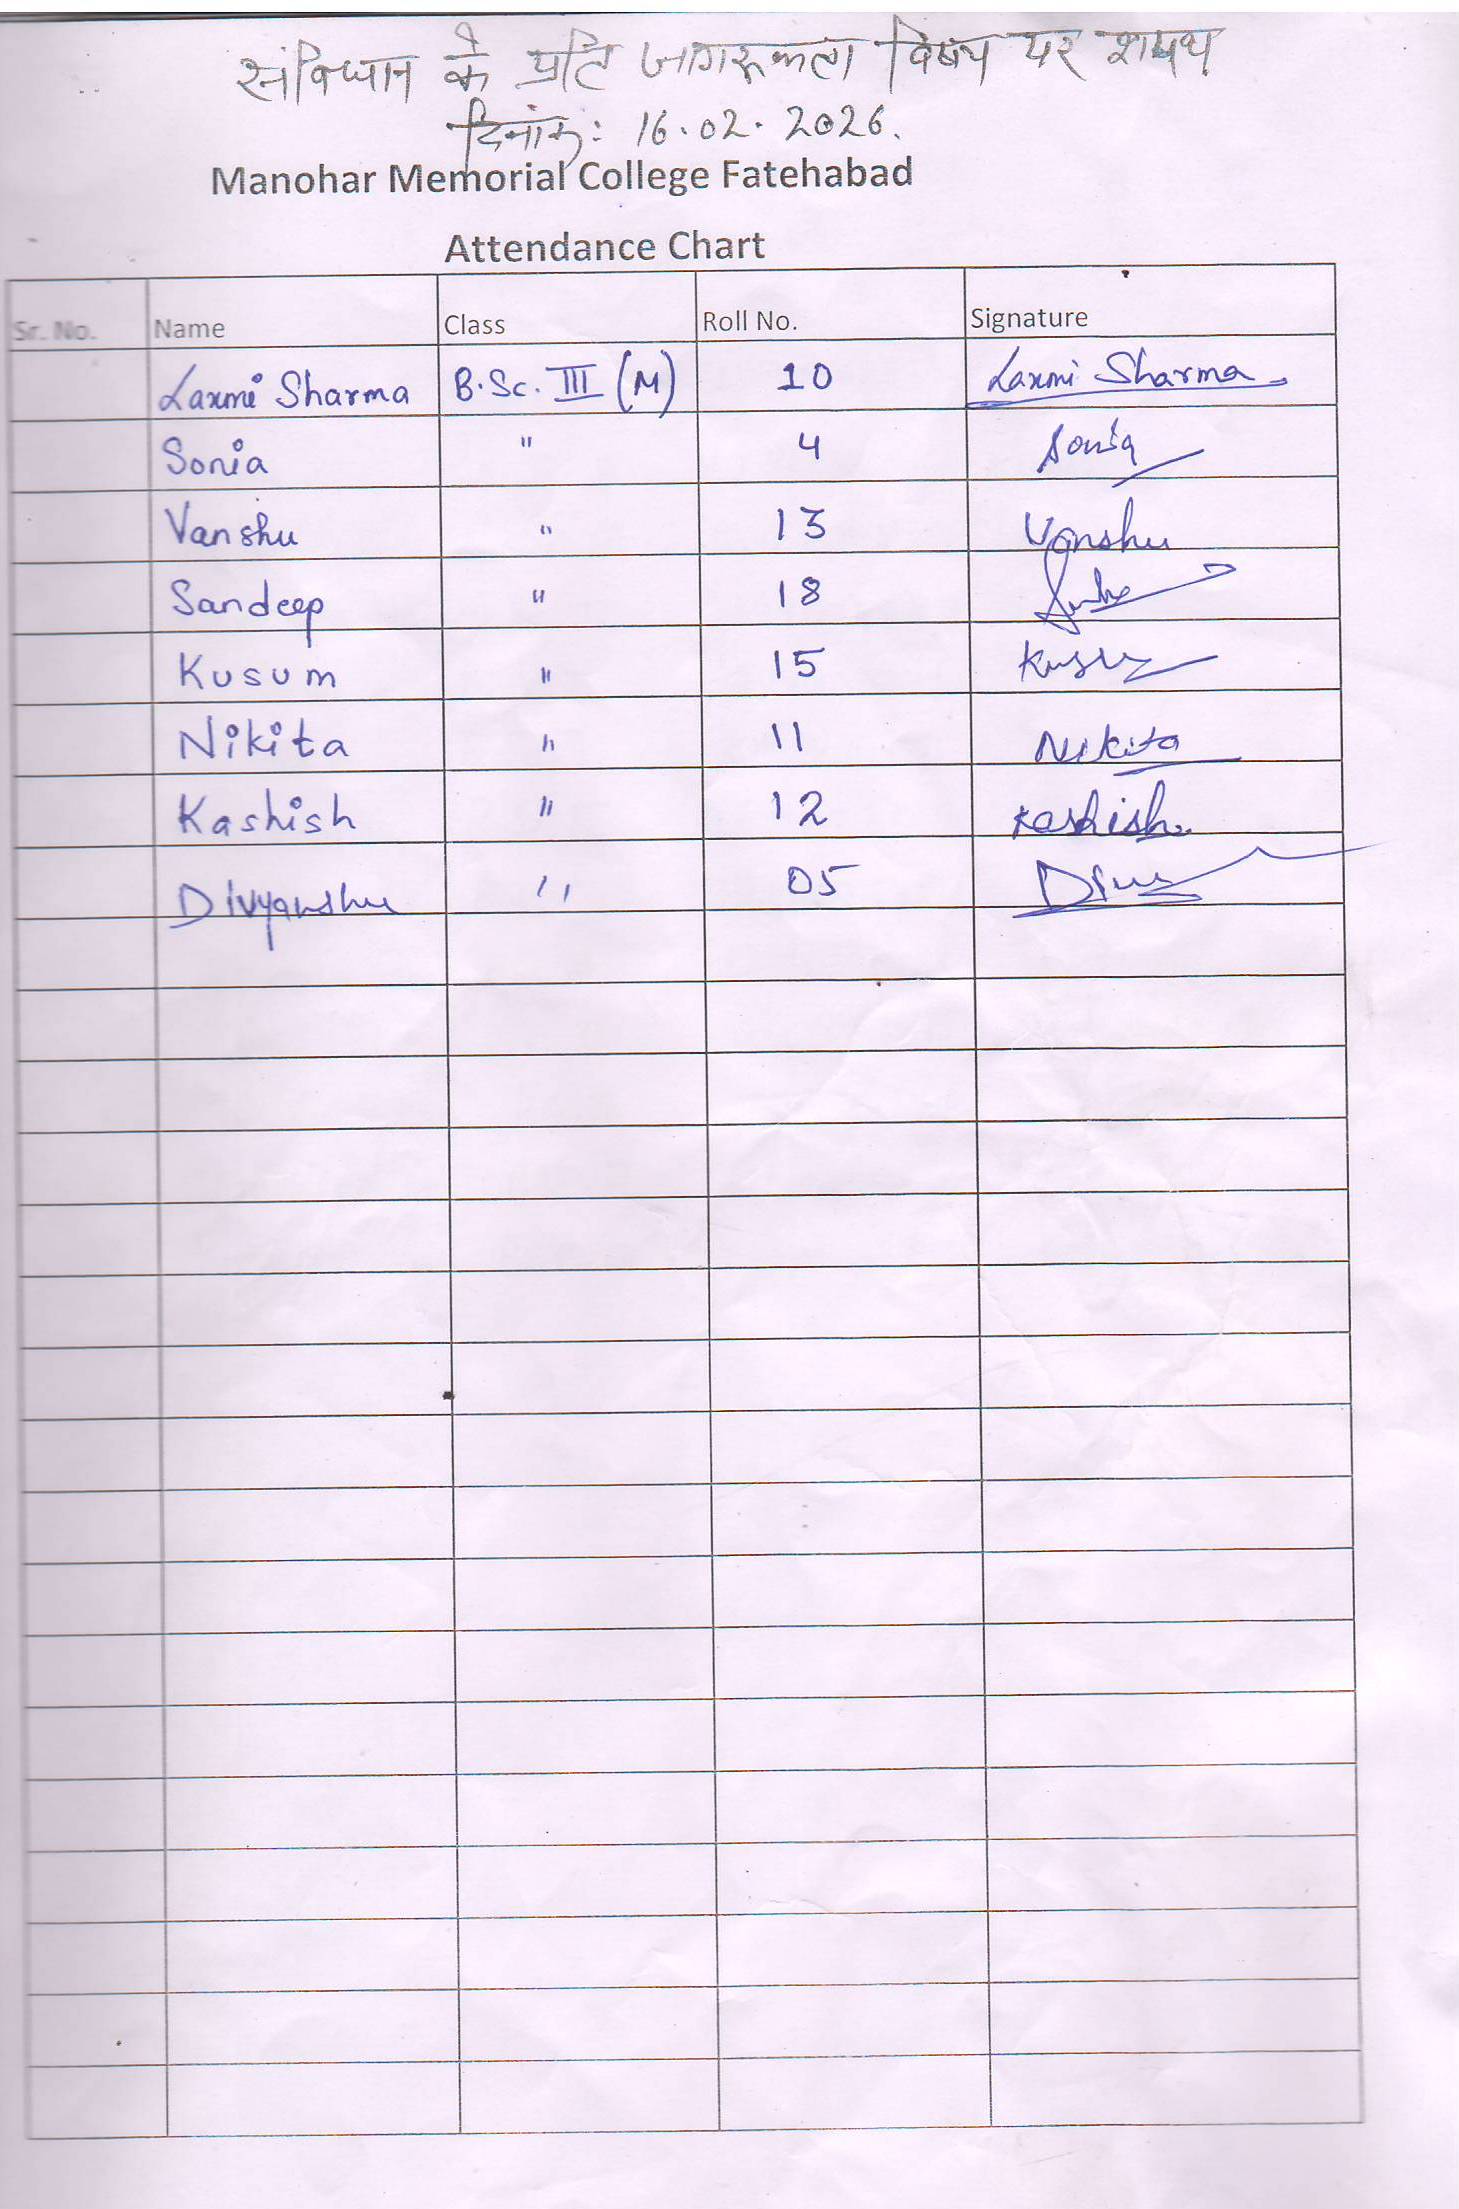 संविधान के प्रति जागरूकता विषय पर शपथ
दिनांक: 16.02.2026.
Manohar Memorial College Fatehabad
Attendance Chart
Sr. No. Name Class Roll No. Signature
Laxmi Sharma B.Sc. III (M) 10 Laxmi Sharma
Sonia " 4 Sonia
Vanshu " 13 Vanshu
Sandeep " 18
Kusum " 15
Nikita " 11 Nikita
Kashish " 12 Kashish
Divyanshu " 05